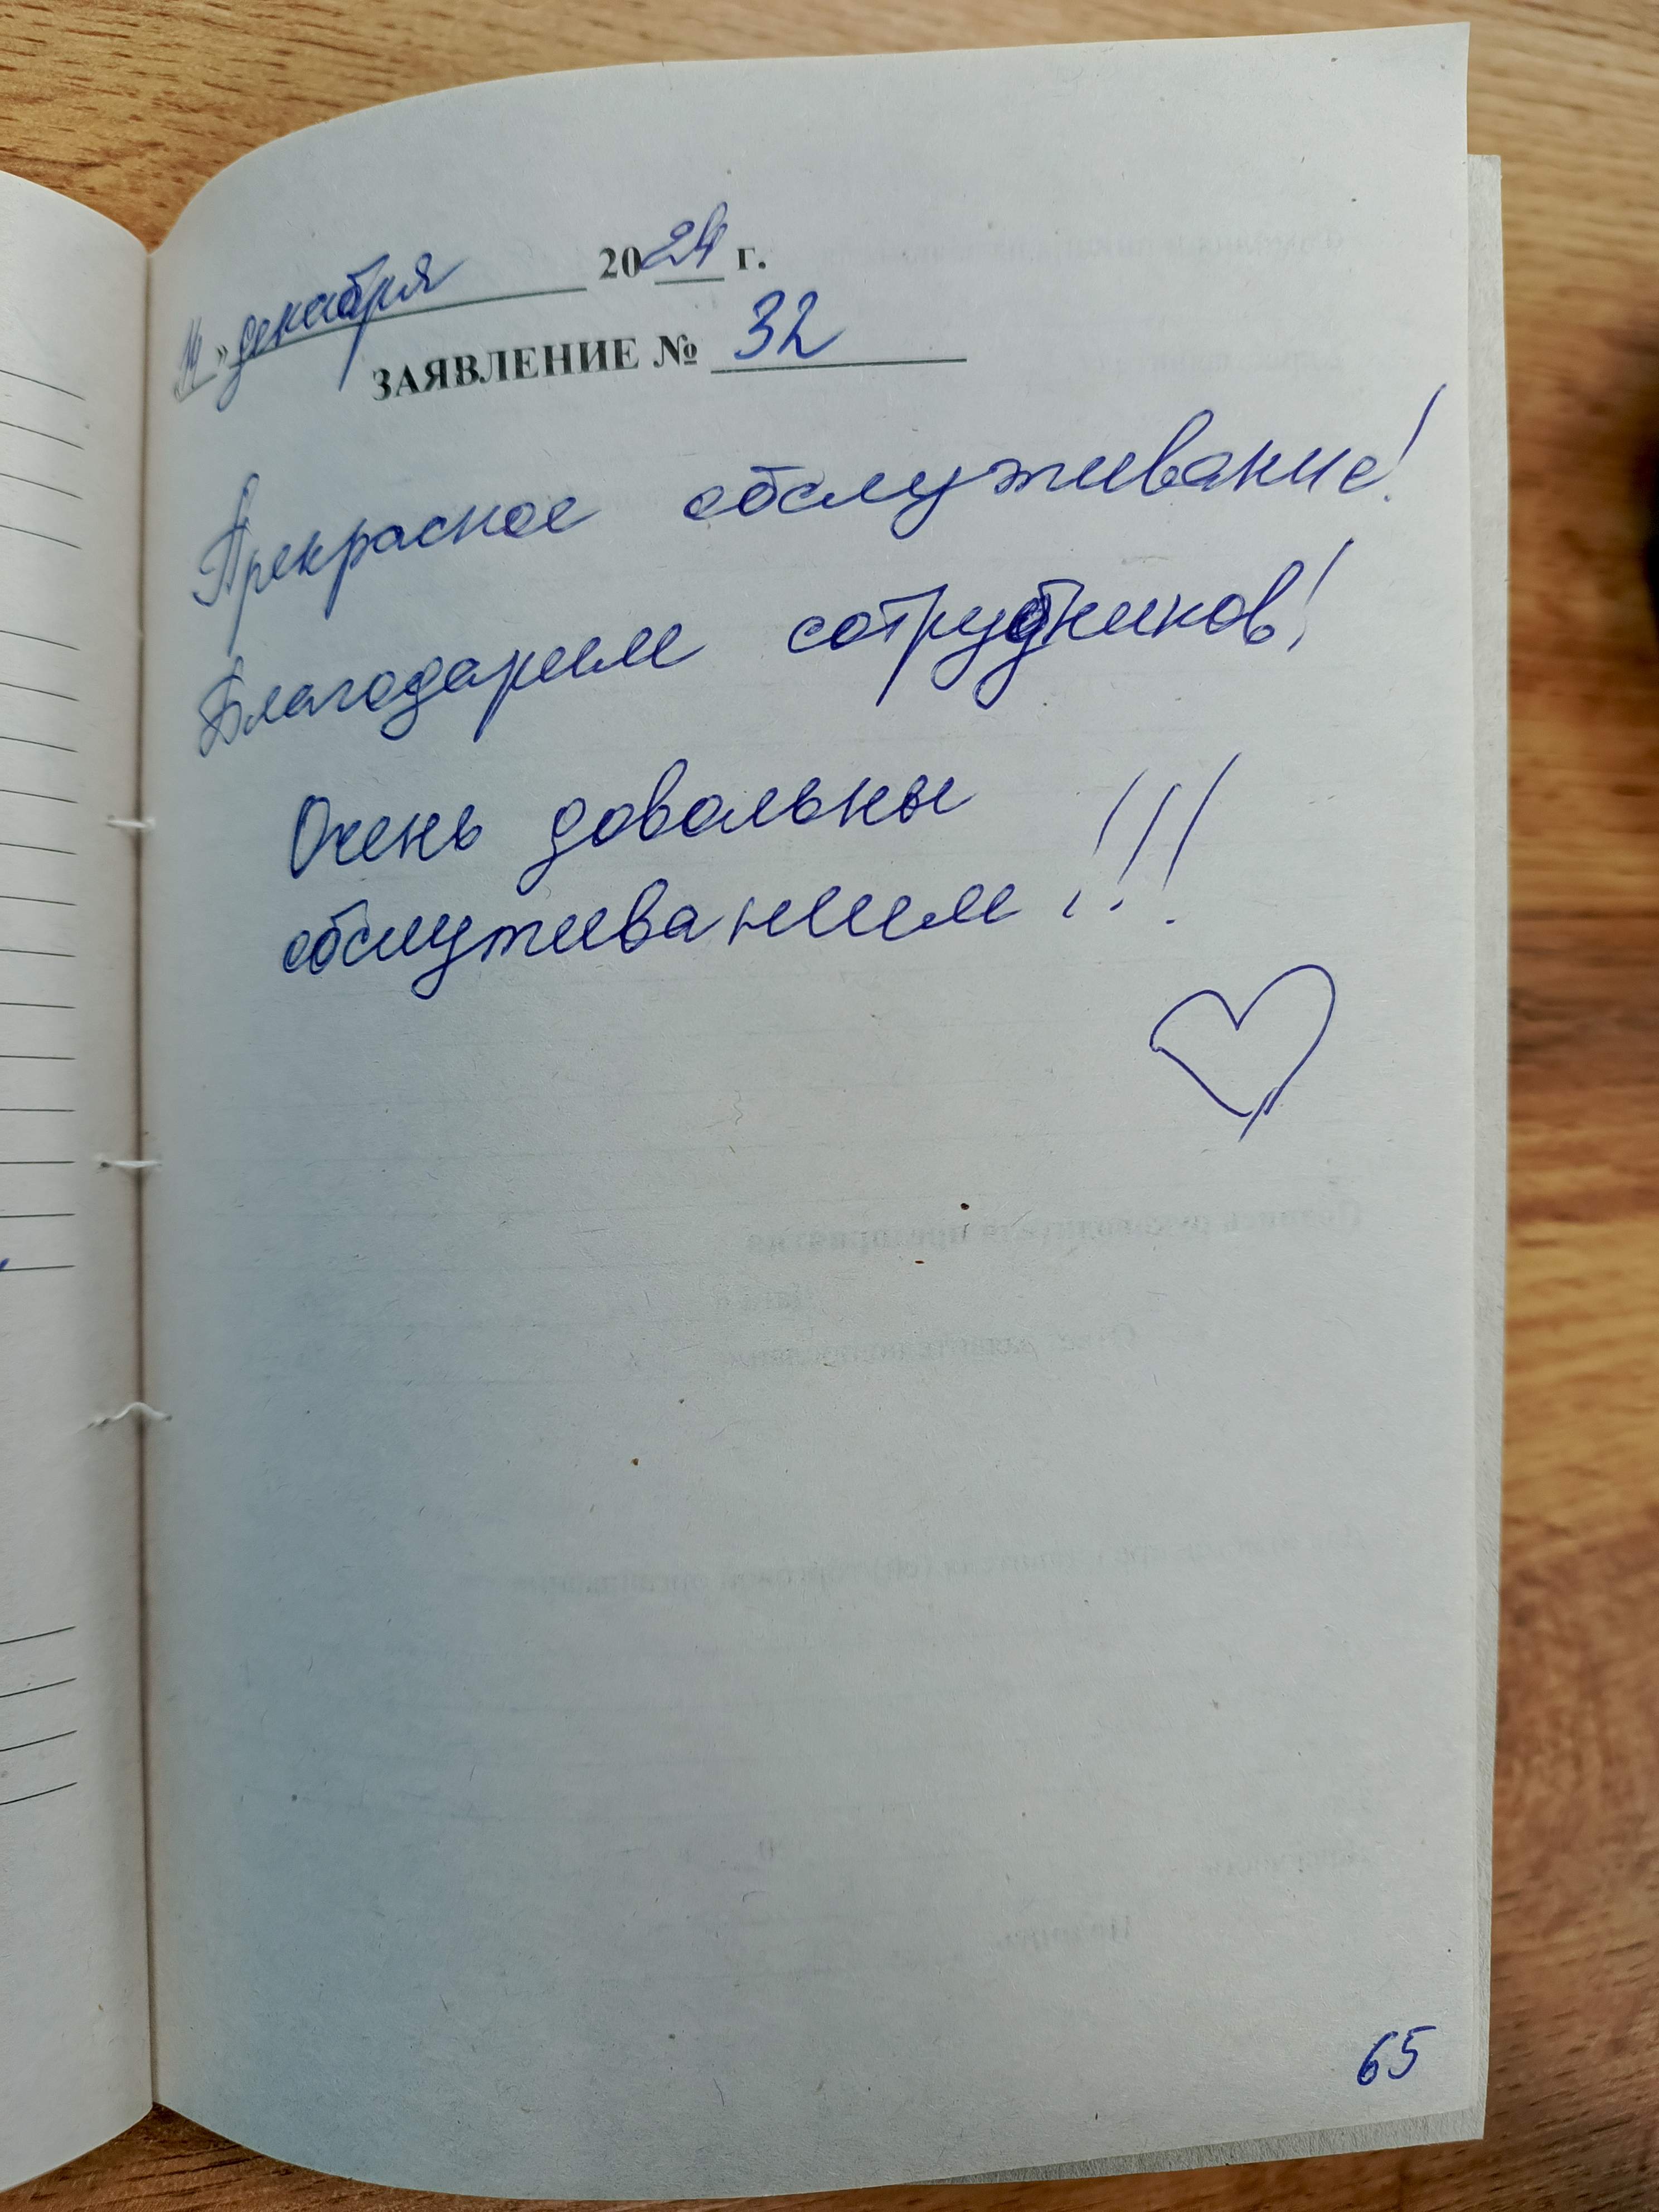 14 » декабря 2024 г.
ЗАЯВЛЕНИЕ № 32
Прекрасное обслуживание!
Благодарим сотрудников!
Очень довольны
обслуживанием!!!
65